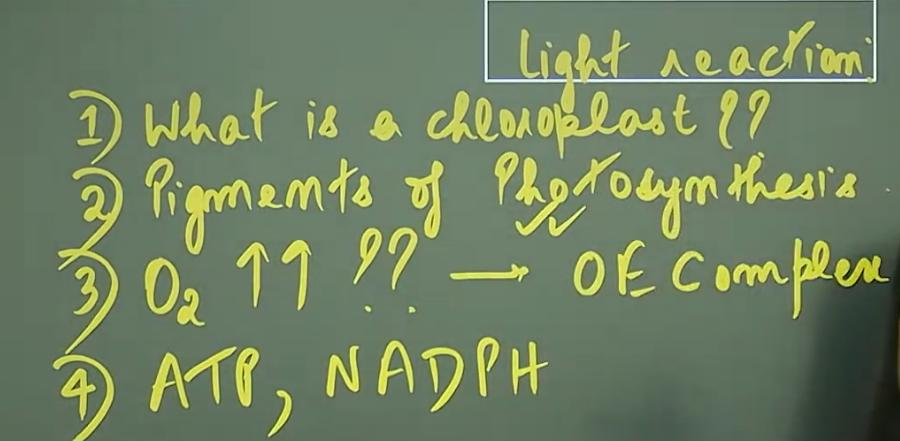 Light reaction:
1) What is a chloroplast ??
2) Pigments of Photosynthesis.
3) O₂ ↑↑ ?? → OE Complex
4) ATP, NADPH